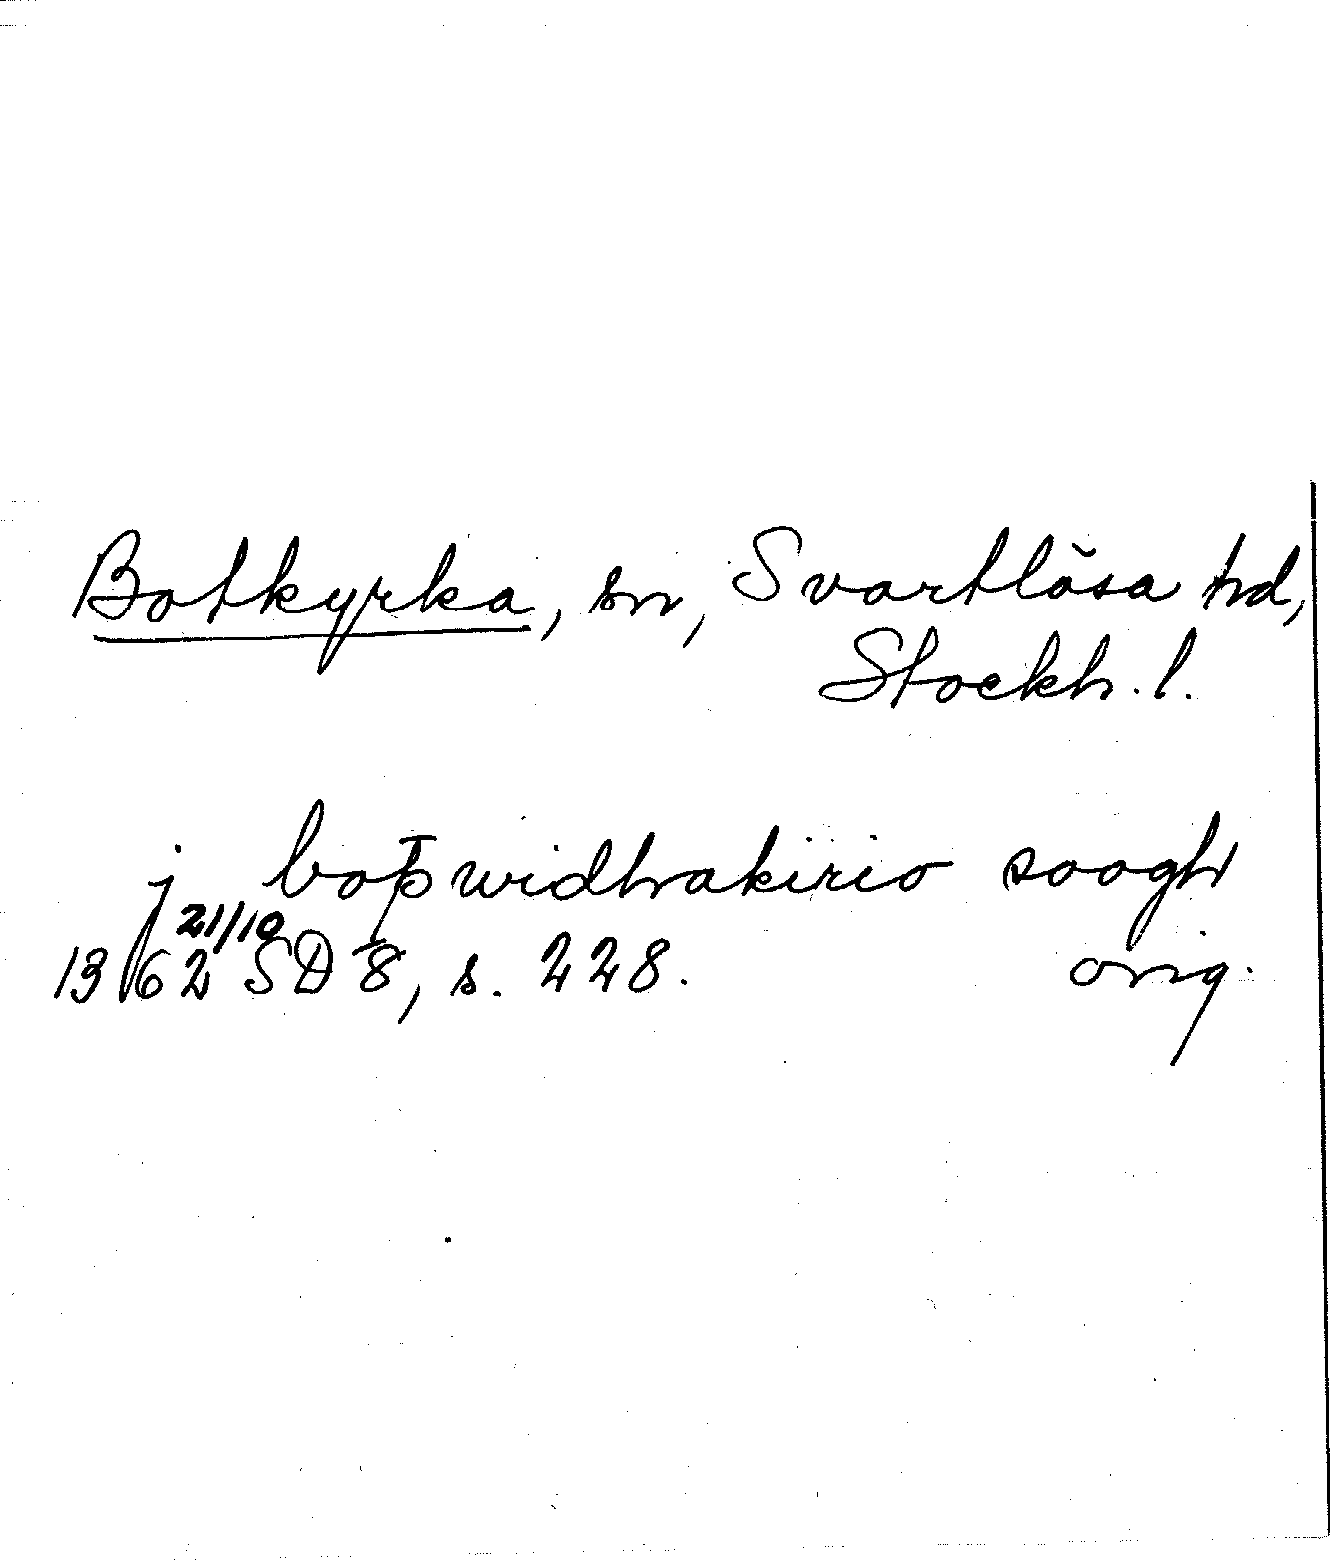 Botkyrka, sn, Svartlösa hd,
Stockh. l.
j boþwidhakirio soogh
1362 21/10 SD 8, s. 228. orig.